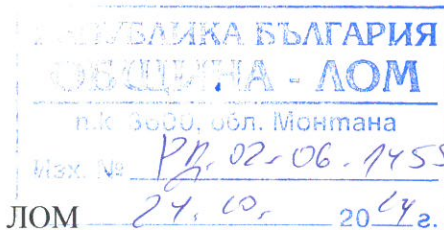 РЕПУБЛИКА БЪЛГАРИЯ
ОБЩИНА - ЛОМ
п.к. 3600, обл. Монтана
Изх. № РД-02-06-1455
ЛОМ 24.10. 2014 г.